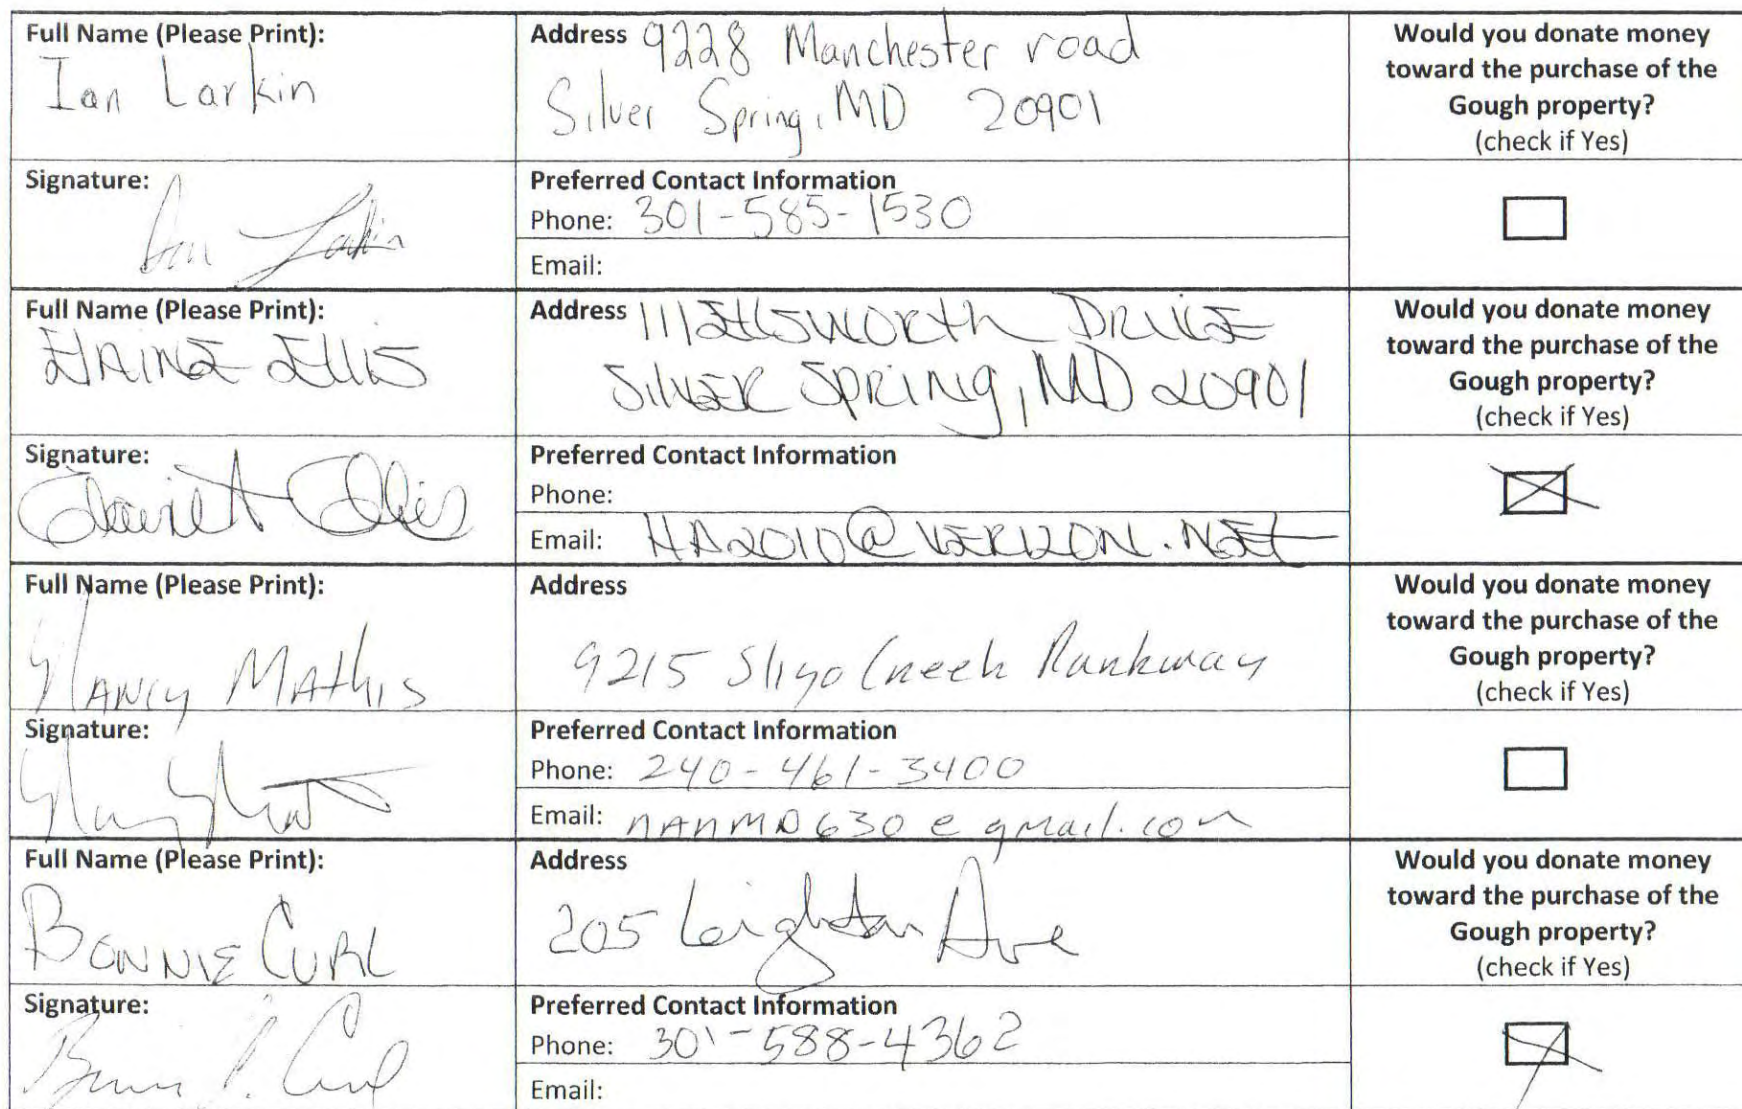 Full Name (Please Print):
Ian Larkin
Address 9228 Manchester road
Silver Spring, MD 20901
Would you donate money
toward the purchase of the
Gough property?
(check if Yes)
Signature:
Ian Larkin
Preferred Contact Information
Phone: 301-585-1530
Email:
Full Name (Please Print):
ELAINE ELLIS
Address 111 ELLSWORTH DRIVE
SILVER SPRING, MD 20901
Would you donate money
toward the purchase of the
Gough property?
(check if Yes)
Signature:
Elaine A Ellis
Preferred Contact Information
Phone:
Email: HA2010@VERIZON.NET
Full Name (Please Print):
NANCY MATHIS
Address
9215 Sligo Creek Parkway
Would you donate money
toward the purchase of the
Gough property?
(check if Yes)
Signature:
Preferred Contact Information
Phone: 240-461-3400
Email: NANMD630@gmail.com
Full Name (Please Print):
BONNIE CURL
Address
205 Leighton Ave
Would you donate money
toward the purchase of the
Gough property?
(check if Yes)
Signature:
Preferred Contact Information
Phone: 301-588-4362
Email: